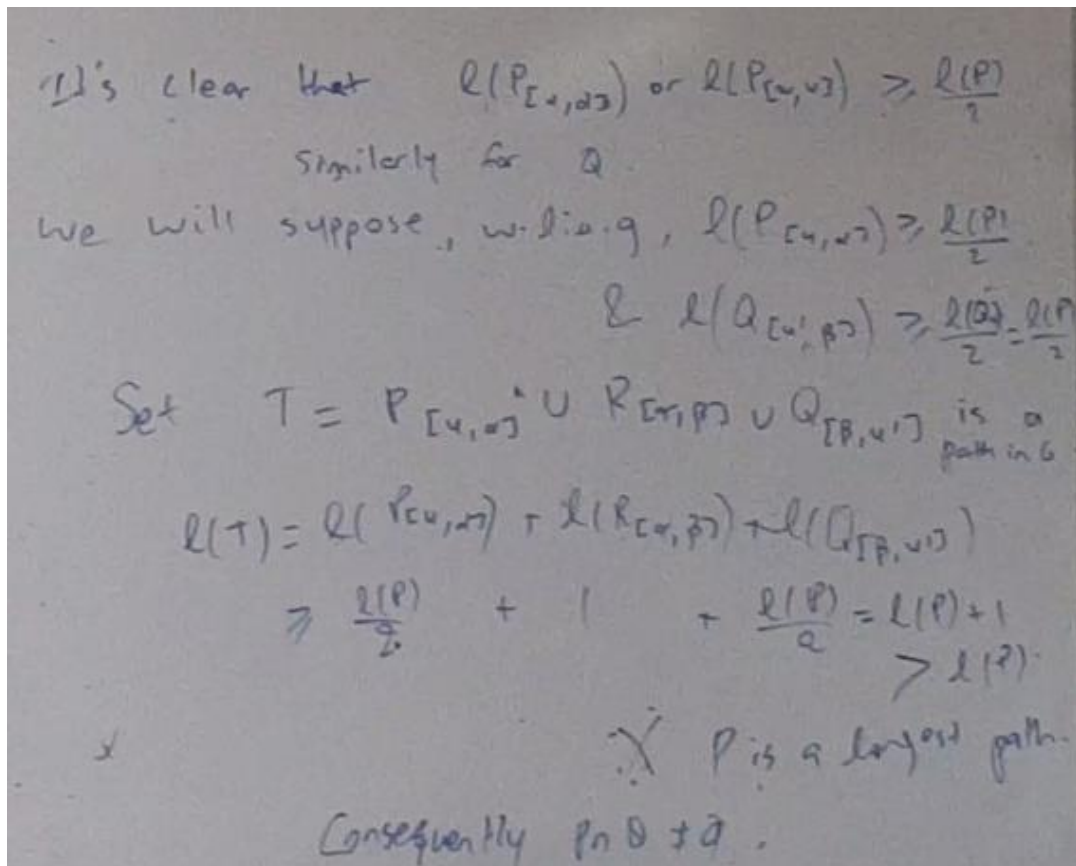 It's clear that l(P[u,α]) or l(P[α,v]) ≥ l(P)/2
similarly for Q.
we will suppose, w.l.o.g, l(P[u,α]) ≥ l(P)/2.
& l(Q[u',β]) ≥ l(Q)/2 = l(P)/2
Set T = P[u,α] ∪ R[α,β] ∪ Q[β,u'] is a path in G
l(T) = l(P[u,α]) + l(R[α,β]) + l(Q[β,u'])
≥ l(P)/2 + 1 + l(P)/2 = l(P)+1
> l(P).
P is a longest path.
Consequently P∩Q ≠ ∅.